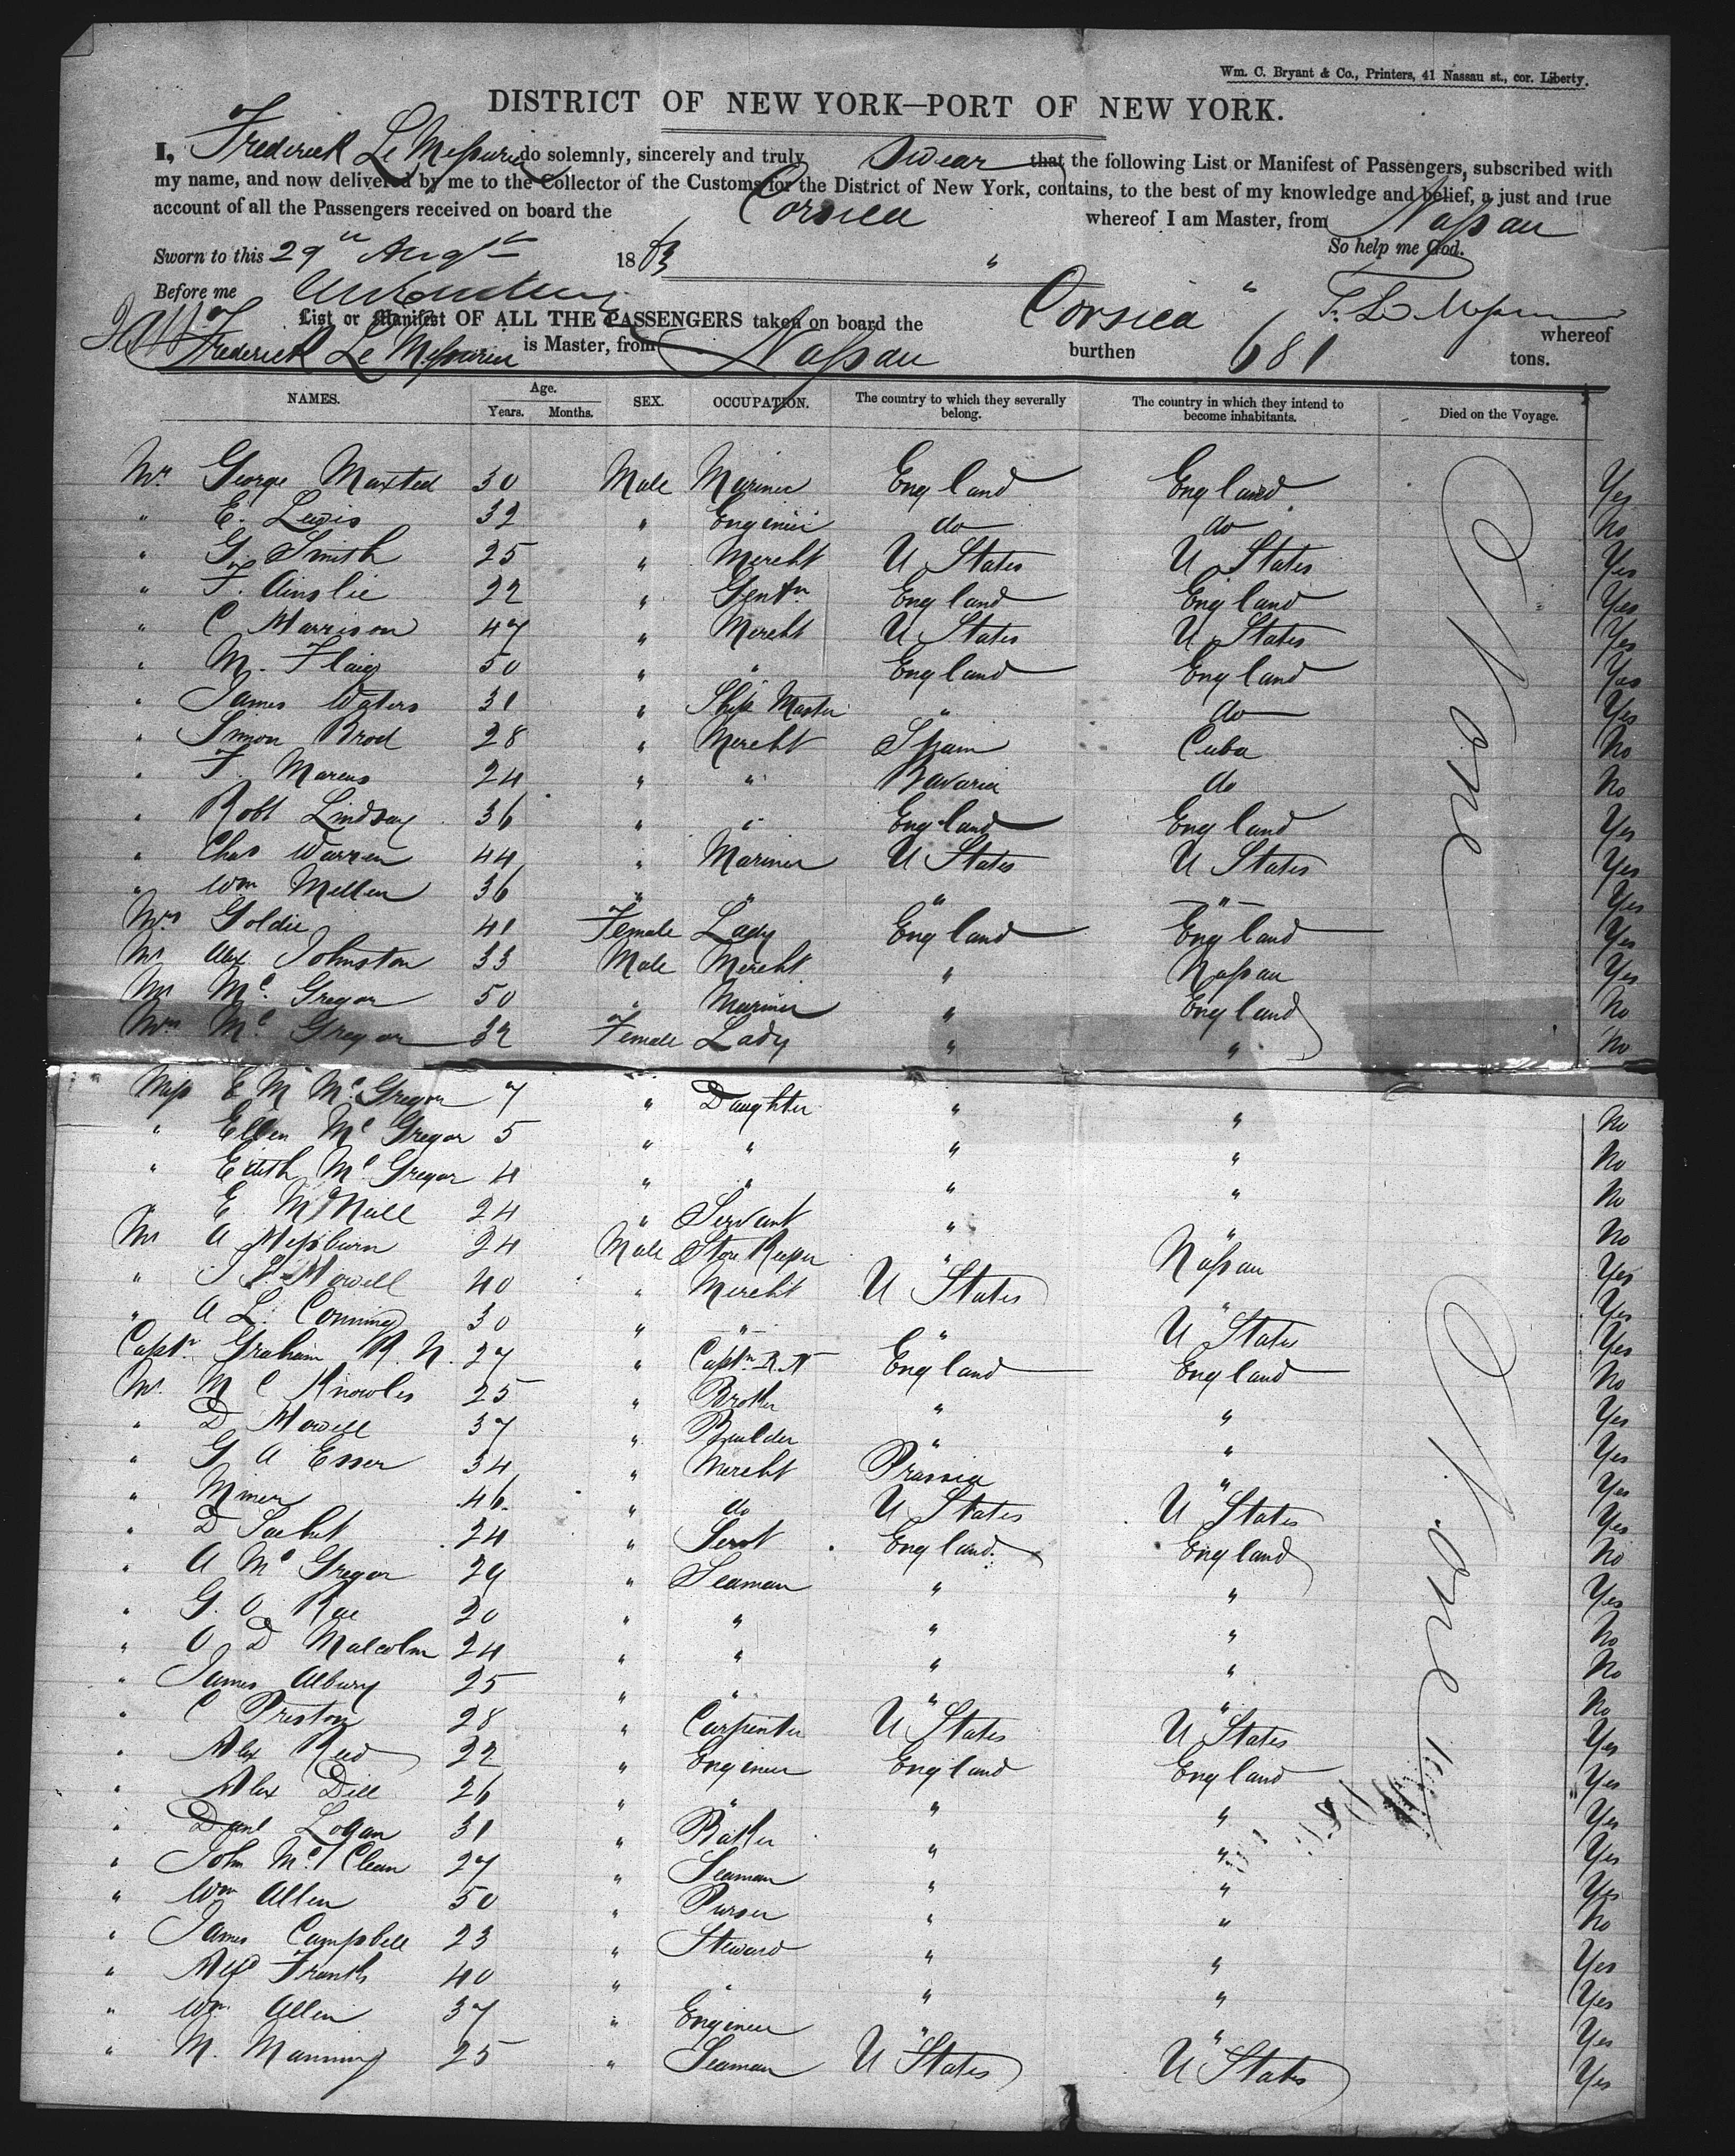 Wm. C. Bryant & Co., Printers, 41 Nassau st., cor. Liberty.
DISTRICT OF NEW YORK—PORT OF NEW YORK.
I, Frederick Le Messurier do solemnly, sincerely and truly swear that the following List or Manifest of Passengers, subscribed with
my name, and now delivered by me to the Collector of the Customs for the District of New York, contains, to the best of my knowledge and belief, a just and true
account of all the Passengers received on board the Corsica whereof I am Master, from Nassau
Sworn to this 29th Augst 1863 " So help me God.
Before me
List or Manifest OF ALL THE PASSENGERS taken on board the Corsica " whereof
Frederick Le Messurier is Master, from Nassau burthen 681 tons.
NAMES. Age. Years. Months. SEX. OCCUPATION. The country to which they severally belong. The country in which they intend to become inhabitants. Died on the Voyage.
Mr George Maxted 30 Male Mariner England England Yes
" E. Lewis 32 " Engineer do do No
" G. Smith 25 " Mercht U States U States Yes
" F. Ainslie 22 " Gentn England England Yes
" C Harrison 47 " Mercht U States U States Yes
" M. Flaig 50 " " England England Yes
" James Waters 31 " Ship Master " do Yes
" Simon Brod 28 " Mercht Spain Cuba No
" F. Marcus 24 " " Bavaria do No
" Robt Lindsay 36 " " England England Yes
" Chas Warren 44 " Mariner U States U States Yes
" Wm Mellen 36 " " " " Yes
Mrs Goldie 41 Female Lady England England Yes
Mr Alex Johnston 33 Male Mercht " Nassau Yes
Mr Mc Gregor 50 " Mariner " England No
Mrs Mc Gregor 32 Female Lady " " No
None
Miss E M Mc Gregor 7 " Daughter " " No
" Ellen Mc Gregor 5 " " " " No
" Edith Mc Gregor 4 " " " " No
" E. McNeill 24 " Servant " " No
Mr A Hepburn 24 Male Store Keeper " Nassau Yes
" Howell 40 " Mercht U States " Yes
" A L. Conning 30 " " " U States Yes
Captn Graham R. N. 27 " Captn R. N England England No
Mr. M C Knowles 25 " Broker " " Yes
" D Howell 37 " Builder " " Yes
" G A Esser 34 " Mercht Prussia " Yes
" Miner 46 " do U States U States Yes
" D Sachet 24 " Servt England England No
" A Mc Gregor 29 " Seaman " " Yes
" G. O. Rae 20 " " " " No
" O D Malcolm 24 " " " " No
" James Albury 25 " " " " No
" C Preston 28 " Carpenter U States U States Yes
" Alex Reed 22 " Engineer England England Yes
" Alex Dill 26 " " " " Yes
" Danl Logan 31 " Baker " " Yes
" John Mc Clean 27 " Seaman " " Yes
" Wm Allen 50 " Purser " " No
" James Campbell 23 " Steward " " Yes
" Alfd Frank 40 " " " " Yes
" Wm Allen 37 " Engineer " " Yes
" M. Manning 25 " Seaman U States U States Yes
None